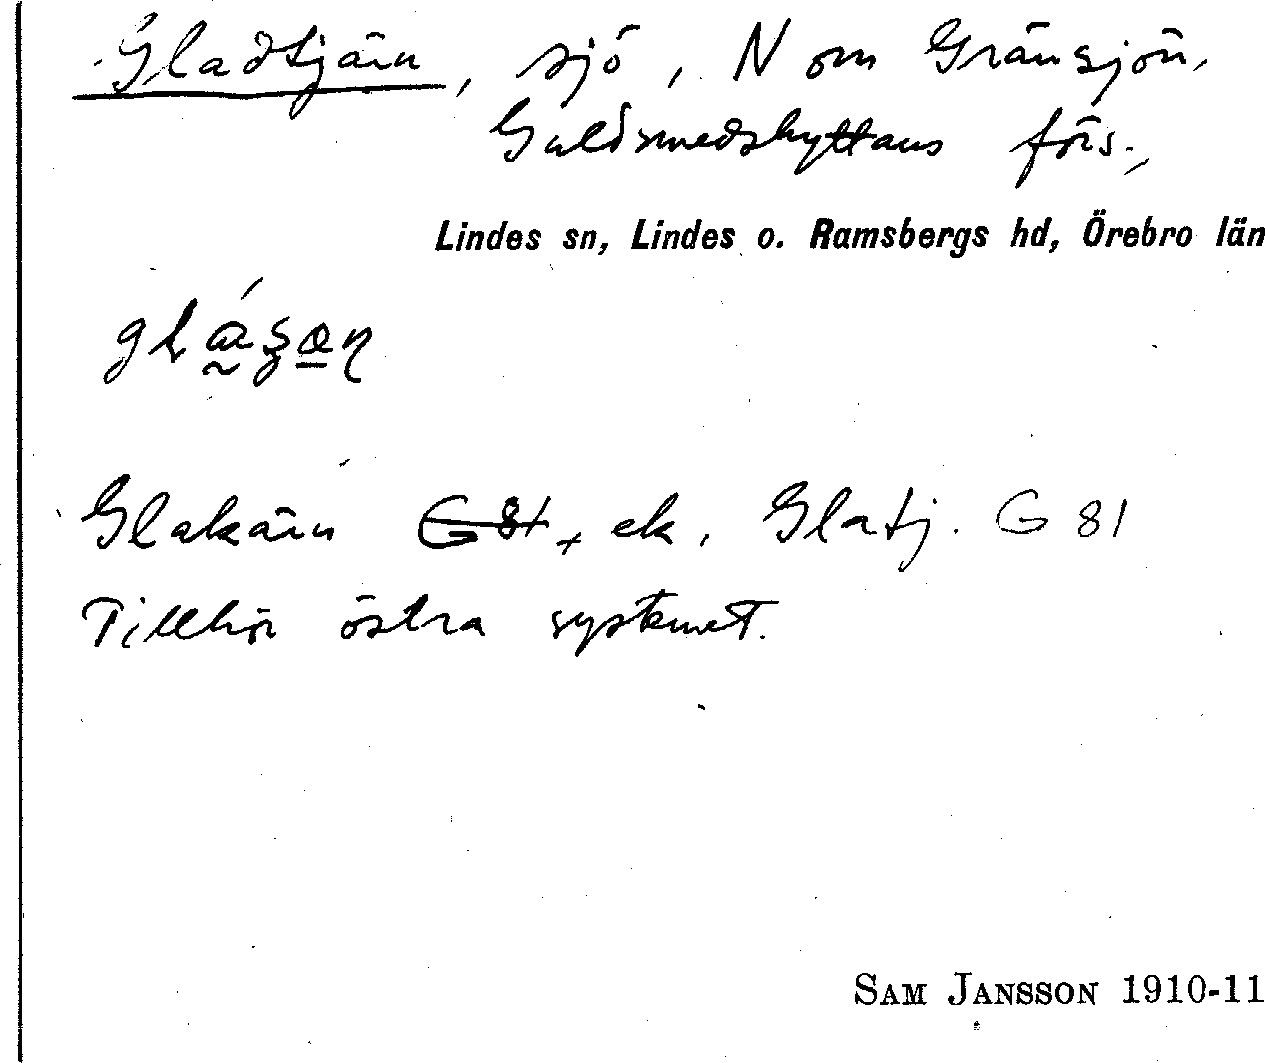 Gladtjärn, sjö, N om Gränsjön,
Guldsmedshyttans förs.,
Lindes sn, Lindes o. Ramsbergs hd, Örebro län
Glakärn G 81, ek. Glatj. G 81
Tillhör östra systemet.
SAM JANSSON 1910-11